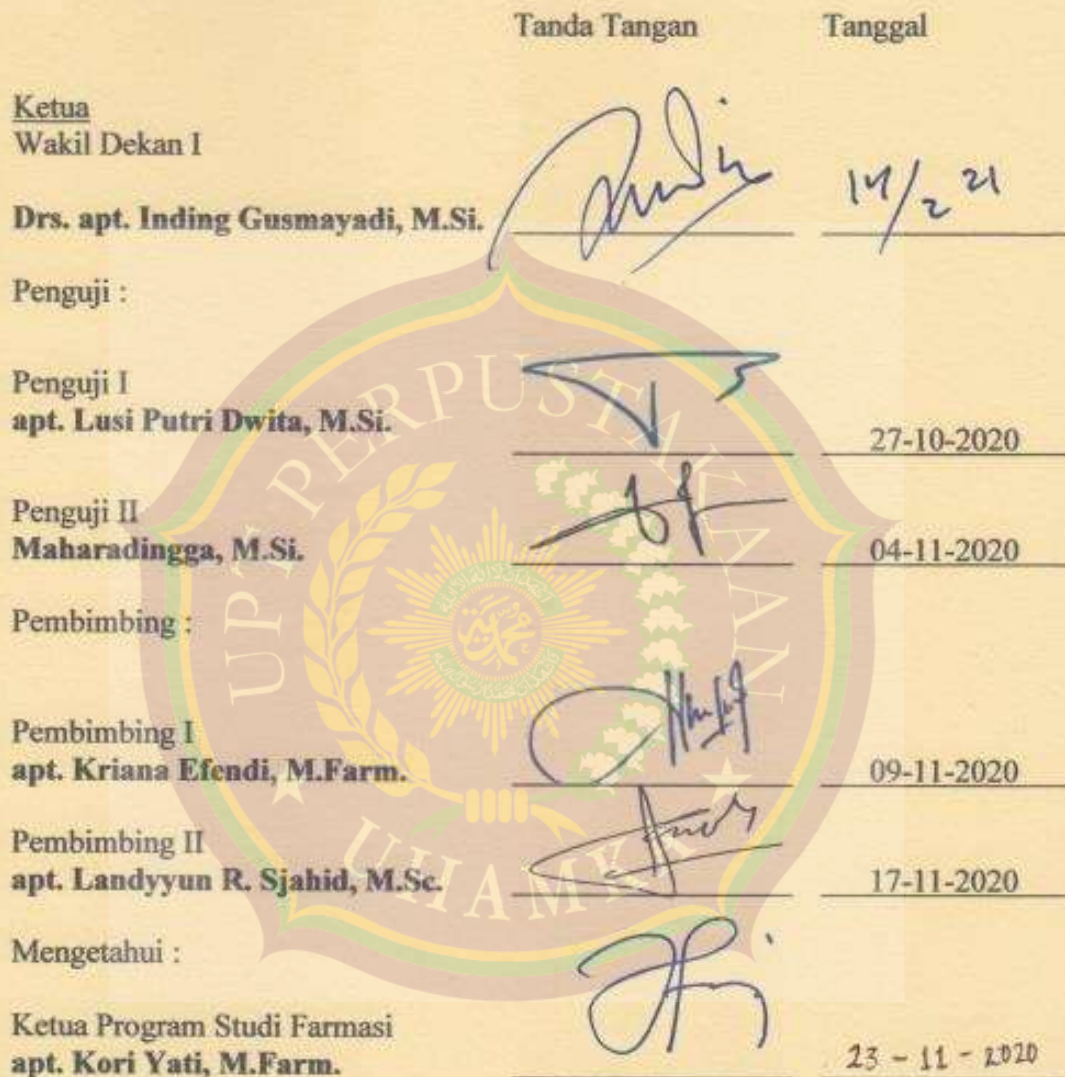 Tanda Tangan Tanggal
Ketua
Wakil Dekan I
Drs. apt. Inding Gusmayadi, M.Si. 14/2 21
Penguji :
Penguji I
apt. Lusi Putri Dwita, M.Si. 27-10-2020
Penguji II
Maharadingga, M.Si. 04-11-2020
Pembimbing :
Pembimbing I
apt. Kriana Efendi, M.Farm. 09-11-2020
Pembimbing II
apt. Landyyun R. Sjahid, M.Sc. 17-11-2020
Mengetahui :
Ketua Program Studi Farmasi
apt. Kori Yati, M.Farm. 23-11-2020
UPT PERPUSTAKAAN
UHAMKA